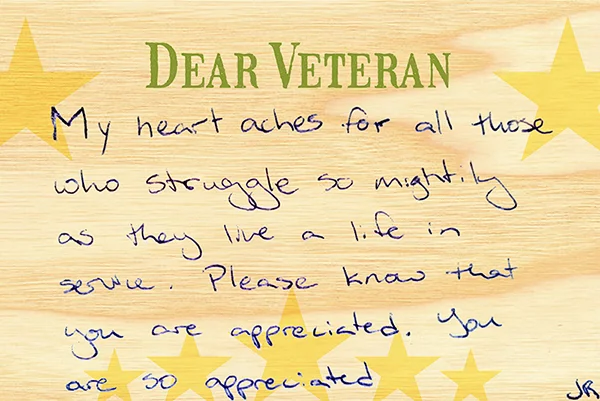 DEAR VETERAN
My heart aches for all those
who struggle so mightily
as they live a life in
service. Please know that
you are appreciated. You
are so appreciated
JR